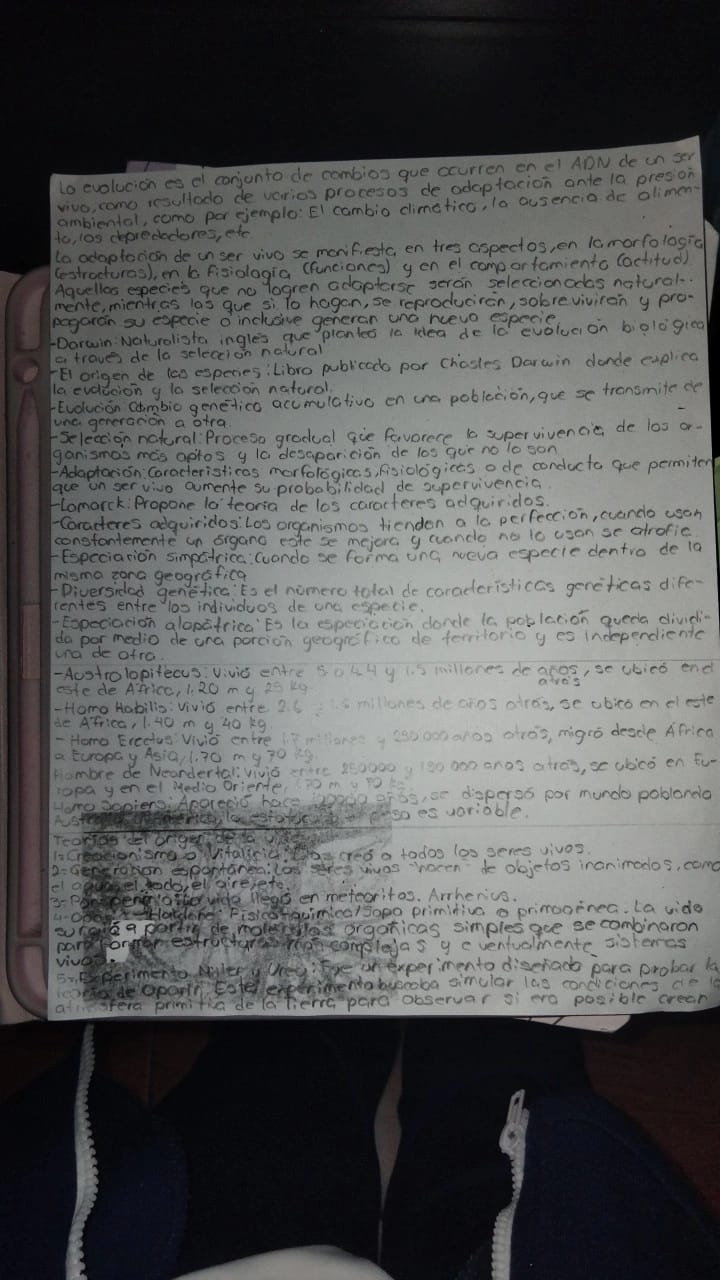 La evolución es el conjunto de cambios que ocurren en el ADN de un ser
vivo, como resultado de varios procesos de adaptación ante la presión
ambiental, como por ejemplo: El cambio climático, la ausencia de alimen-
to, los depredadores, etc.
La adaptación de un ser vivo se manifiesta en tres aspectos, en la morfología
(estructuras), en la fisiología (funciones) y en el comportamiento (actitud)
Aquellas especies que no logren adaptarse serán seleccionadas natural-
mente, mientras las que si lo hagan, se reproducirán, sobrevivirán y pro-
pagarán su especie o inclusive generan una nueva especie
-Darwin: Naturalista inglés que planteó la idea de la evolución biológica
a través de la selección natural
-El origen de las especies: Libro publicado por Chasles Darwin donde explica
la evolución y la selección natural.
-Evolución Cambio genético acumulativo en una población, que se transmite de
una generación a otra.
-Selección natural: Proceso gradual que favorece la supervivencia de los or-
ganismos más aptos y la desaparición de los que no lo son.
-Adaptación: Características morfológicas, fisiológicas o de conducta que permiten
que un ser vivo aumente su probabilidad de supervivencia.
-Lamarck: Propone la teoría de los caracteres adquiridos.
-Caracteres adquiridos: Los organismos tienden a la perfección, cuando usan
constantemente un órgano este se mejora y cuando no lo usan se atrofie
-Especiación simpátrica: Cuando se forma una nueva especie dentro de la
misma zona geográfica
-Diversidad genética: Es el número total de características genéticas dife-
rentes entre los individuos de una especie.
-Especiación alopátrica: Es la especiación donde la población queda dividi-
da por medio de una porción geográfico de territorio y es independiente
una de otra.
-Australopitecus: Vivió entre 5 o 4.4 y 1.5 millones de años, se ubicó en el
atrás
este de África, 1.20 m y 25 kg.
-Homo Habilis: Vivió entre 2.6 1.6 millones de años atrás, se ubicó en el este
de África, 1.40 m y 40 kg.
- Homo Erectus: Vivió entre 1.7 millones y 250.000 años atrás, migró desde África
a Europa y Asia, 1.70 m y 70 kg.
Hombre de Neandertal: vivió entre 250000 y 150 000 años atrás, se ubicó en Eu-
ropa y en el Medio Oriente, 1.70 m y kg.
Homo Sapiens: Apareció hace años, se dispersó por mundo poblando
América, la estatura peso es variable.
Teorías del origen de la
1= Creacionismo o Vitalicia: Dios creó a todos los seres vivos.
2= Generación espontánea: Los seres vivos "nacen" de objetos inanimados, como
el agua, el lodo, el aire, etc.
3= vida llegó en meteoritos. Arrhenius.
4= Haldane: Fisicoquímica/Sopa primitiva o primogénea. La vida
surgió a partir de moléculas orgánicas simples que se combinaron
para formar estructuras más complejas y eventualmente sistemas
vivos.
5= Experimento Miller y Urey: Fue un experimento diseñado para probar la
teoría de Oparin. Este experimento buscaba simular las condiciones de la
atmósfera primitia de la tierra para observar si era posible crear